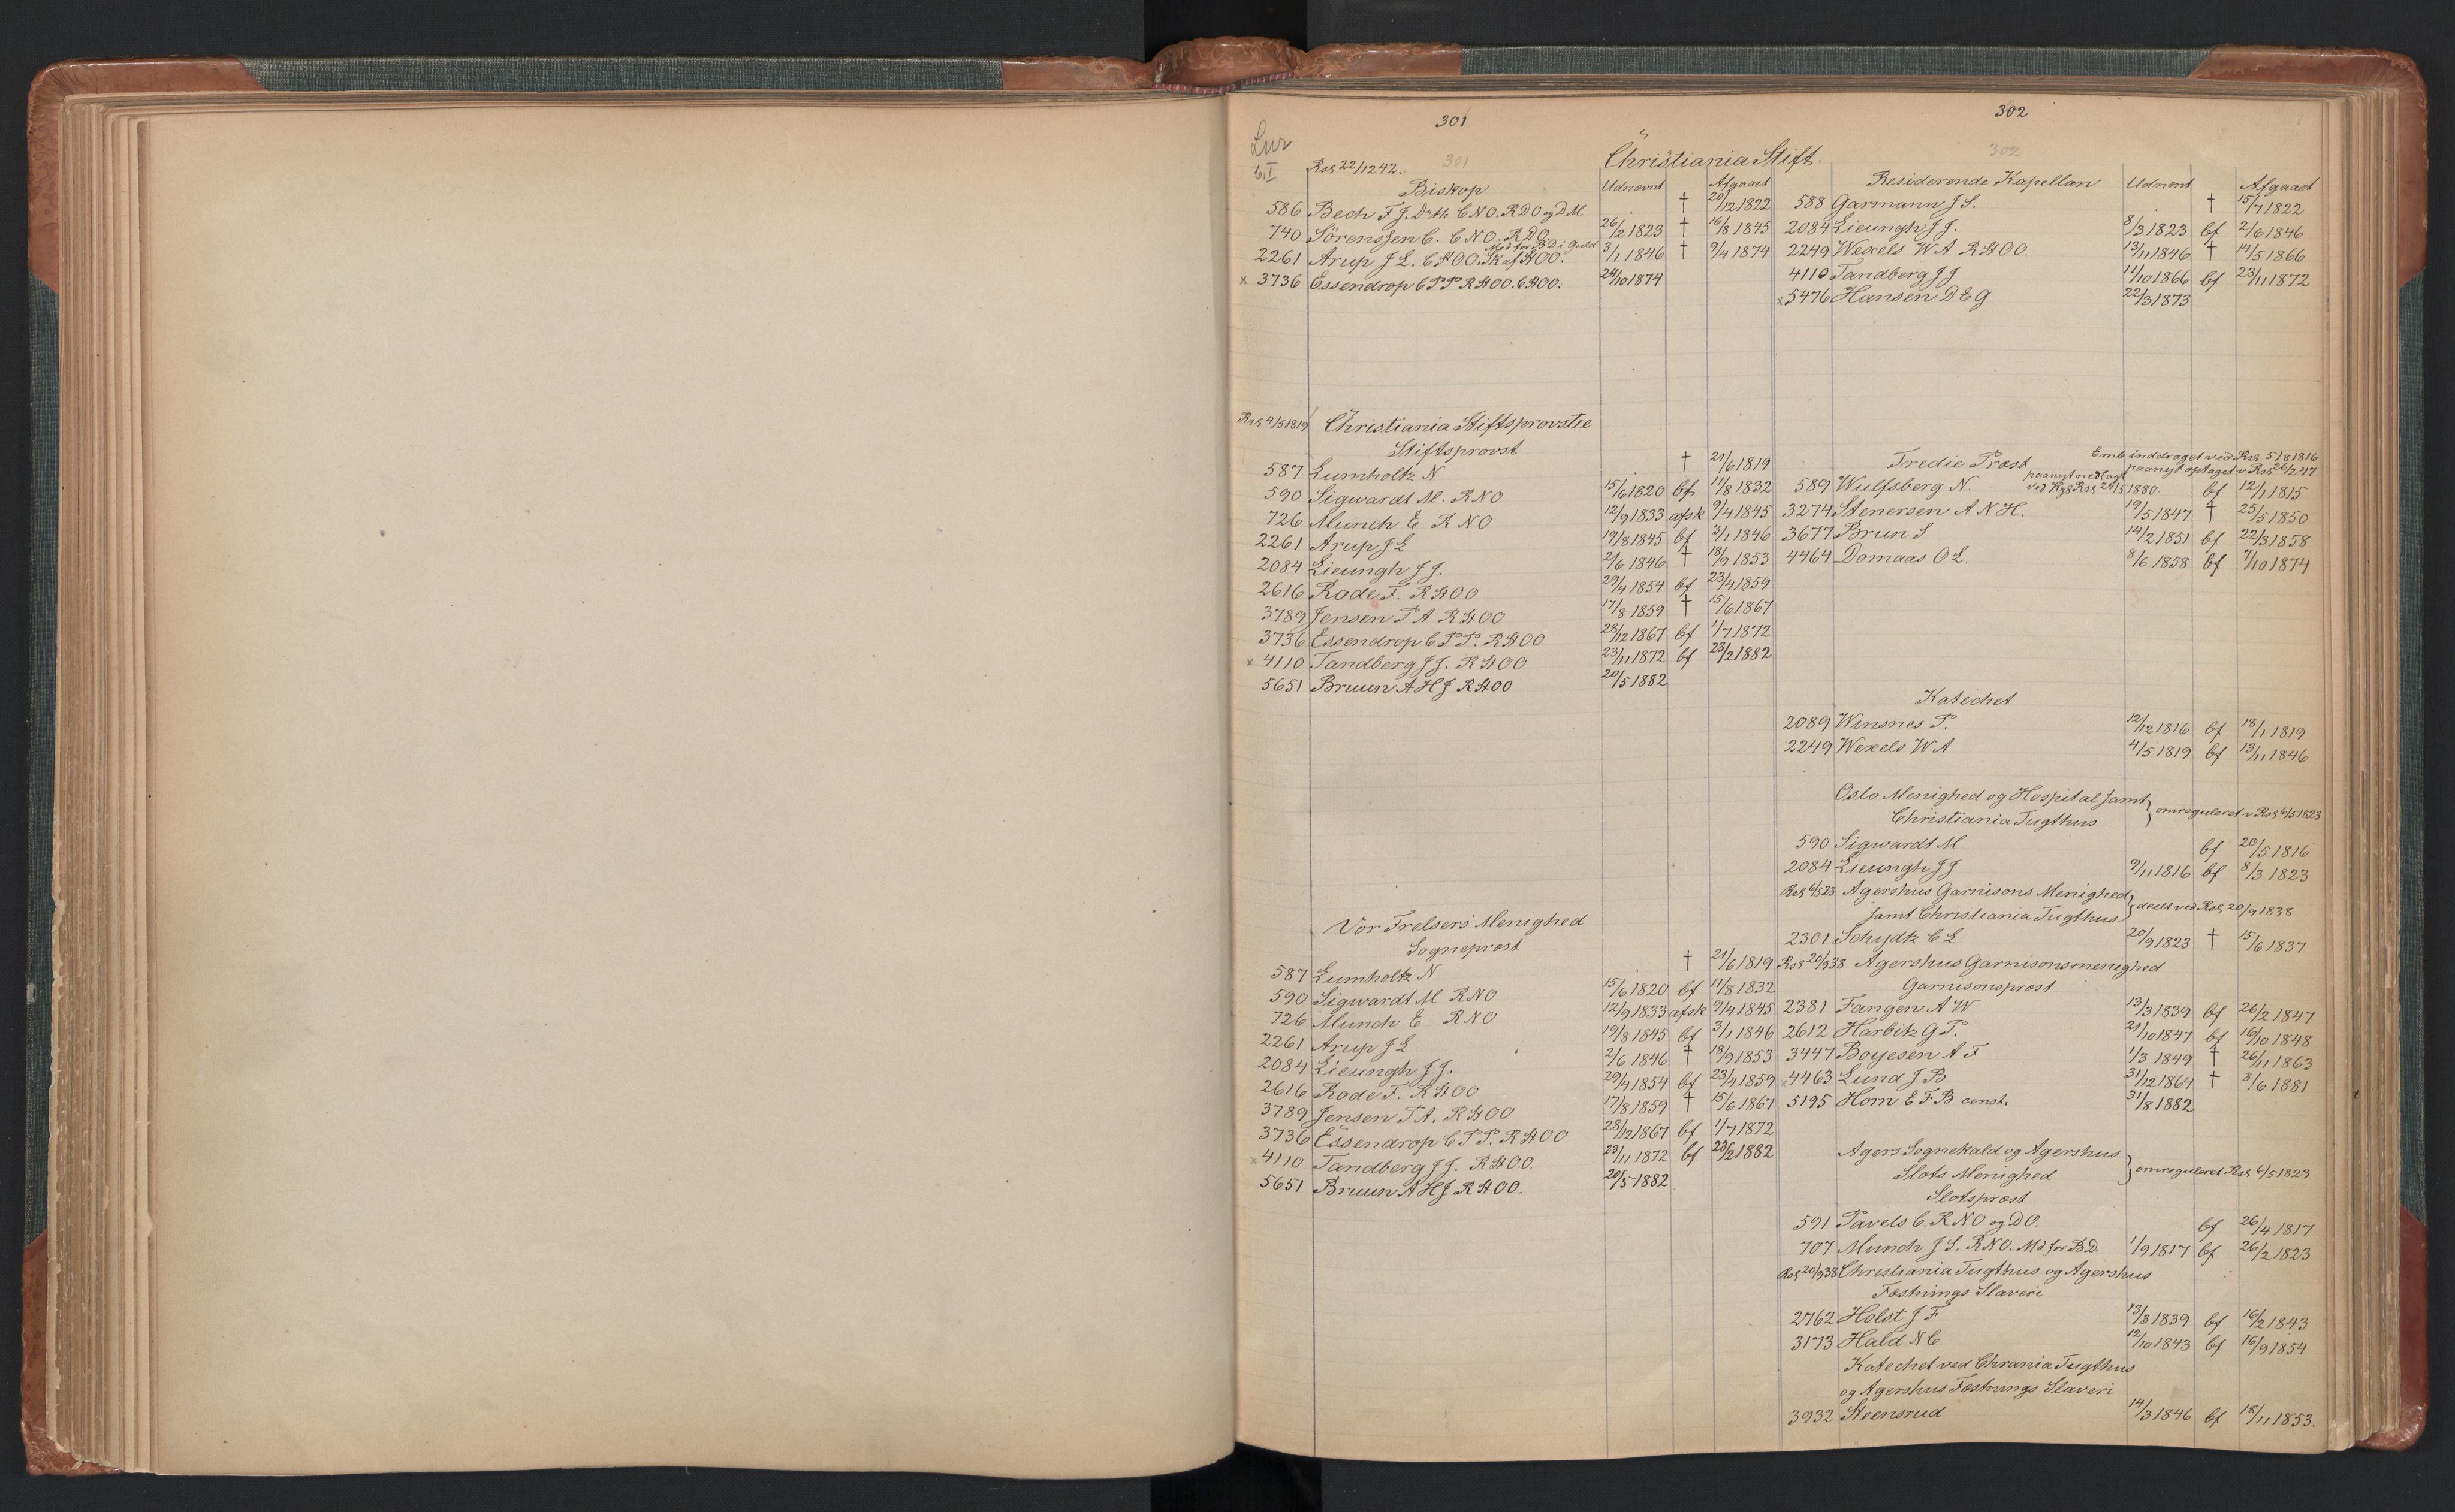 301
302
Christiania Stift.
301
302
Rsl 22/12 42.
Biskop Udnævnt Afgaaet
586 Bech F J. Dr th C N O. R D O og D M † 20/12 1822
740 Sörenssen C. C N O. R D O. 26/2 1823 † 16/8 1845
Md for B D i Guld
2261 Arup J L. C St O O. Sk af St O O. 3/1 1846 † 9/4 1874
x 3736 Essendrop C P P R St O O. C St O O. 24/10 1874
Christiania Stiftsprovstie
Rsl 4/5 1819
Stiftsprovst
587 Lumholtz N † 21/6 1819
590 Sigwardt M. R N O 15/6 1820 bf 11/8 1832
726 Munch E R N O 12/9 1833 afsk 9/4 1845
2261 Arup J L 19/8 1845 bf 3/1 1846
2084 Lieungh J J. 2/6 1846 † 18/9 1853
2616 Rode F. R St O O 29/4 1854 bf 23/4 1859
3789 Jensen P A R St O O 17/8 1859 † 15/6 1867
3736 Essendrop C P P. R St O O 28/12 1867 bf 1/7 1872
x 4110 Tandberg J J. R St O O 23/11 1872 bf 23/2 1882
5651 Bruun A H J R St O O 20/5 1882
Vor Frelsers Menighed
Sogneprest
587 Lumholtz N † 21/6 1819
590 Sigwardt M R N O 15/6 1820 bf 11/8 1832
726 Munch E R N O 12/9 1833 afsk 9/4 1845
2261 Arup J L 19/8 1845 bf 3/1 1846
2084 Lieungh J J. 2/6 1846 † 18/9 1853
2616 Rode F. R St O O 29/4 1854 bf 23/4 1859
3789 Jensen P A. R St O O 17/8 1859 † 15/6 1867
3736 Essendrop C P P. R St O O 28/12 1867 bf 1/7 1872
x 4110 Tandberg J J. R St O O. 23/11 1872 bf 23/2 1882
5651 Bruun A H J R St O O. 20/5 1882
Residerende Kapellan Udnævnt Afgaaet
588 Garmann J S. † 15/7 1822
2084 Lieungh J J. 8/3 1823 bf 2/6 1846
2249 Wexels W A R St O O. 13/11 1846 † 14/5 1866
4110 Tandberg J J 11/10 1866 bf 23/11 1872
x 5476 Hansen D E G 22/3 1873
Tredie Prest
Emb inddraget ved Rsl 5/8 1816
paanyt optaget v Rsl 26/2 47
paanyt nedlagt
ved Kgl Rsl 29/5 1880.
589 Wulfsberg N. bf 12/1 1815
3274 Stenersen A N H. 19/5 1847 † 25/5 1850
3677 Brun S 14/2 1851 bf 22/3 1858
4464 Domaas O L. 8/6 1858 bf 7/10 1874
Katechet
2089 Winsnes P. 12/12 1816 bf 18/1 1819
2249 Wexels W A 4/5 1819 bf 13/11 1846
Oslo Menighed og Hospital samt
Christiania Tugthus } omreguleret v Rsl 6/5 1823
590 Sigwardt M bf 20/5 1816
2084 Lieungh J J 9/11 1816 bf 8/3 1823
Rsl 6/5 23 Agershus Garnisons Menighed
samt Christiania Tugthus } deelt ved Rsl 20/9 1838
2301 Schydtz C L 20/9 1823 † 15/6 1837
Rsl 20/9 38 Agershus Garnisonsmenighed
Garnisonsprest
2381 Fangen A W 13/3 1839 bf 26/2 1847
2612 Harbitz G P. 21/10 1847 bf 16/10 1848
3447 Boyesen A F 1/3 1849 † 26/11 1863
x 4463 Lund J B 31/12 1864 † 8/6 1881
5195 Horn E F B const. 31/8 1882
Agers Sognekald og Agershus
Slots Menighed } omreguleret Rsl 6/5 1823
Slotsprest
591 Pavels C. R N O og D O. bf 26/4 1817
707 Munch J S. R N O. Md for B D. 1/9 1817 bf 26/2 1823
Rsl 20/9 38 Christiania Tugthus og Agershus
Festnings Slaveri
2762 Holst J F 13/3 1839 bf 16/2 1843
3173 Hald N C 12/10 1843 bf 16/9 1854
Katechet ved Chrania Tugthus
og Agershus Festnings Slaveri
3932 Steensrud 14/3 1846 bf 18/11 1853.